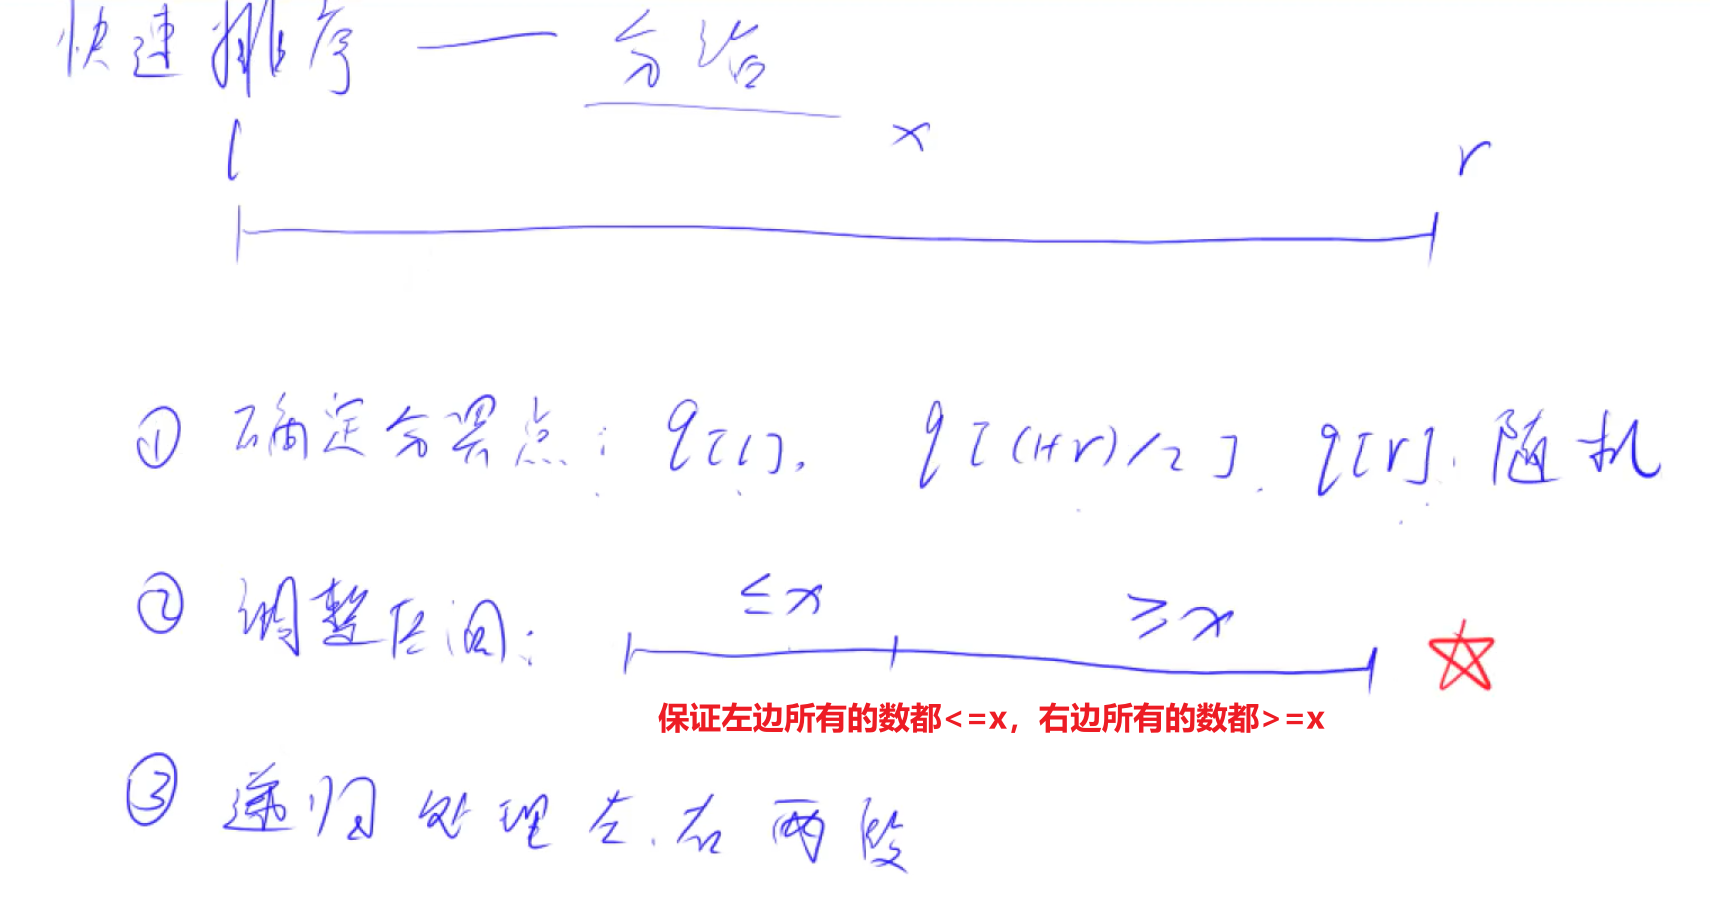 快速排序 —— 分治
l x r
① 确定分界点: q[l], q[(l+r)/2], q[r], 随机
② 调整区间: ≤x ≥x
保证左边所有的数都<=x，右边所有的数都>=x
③ 递归处理左、右两段